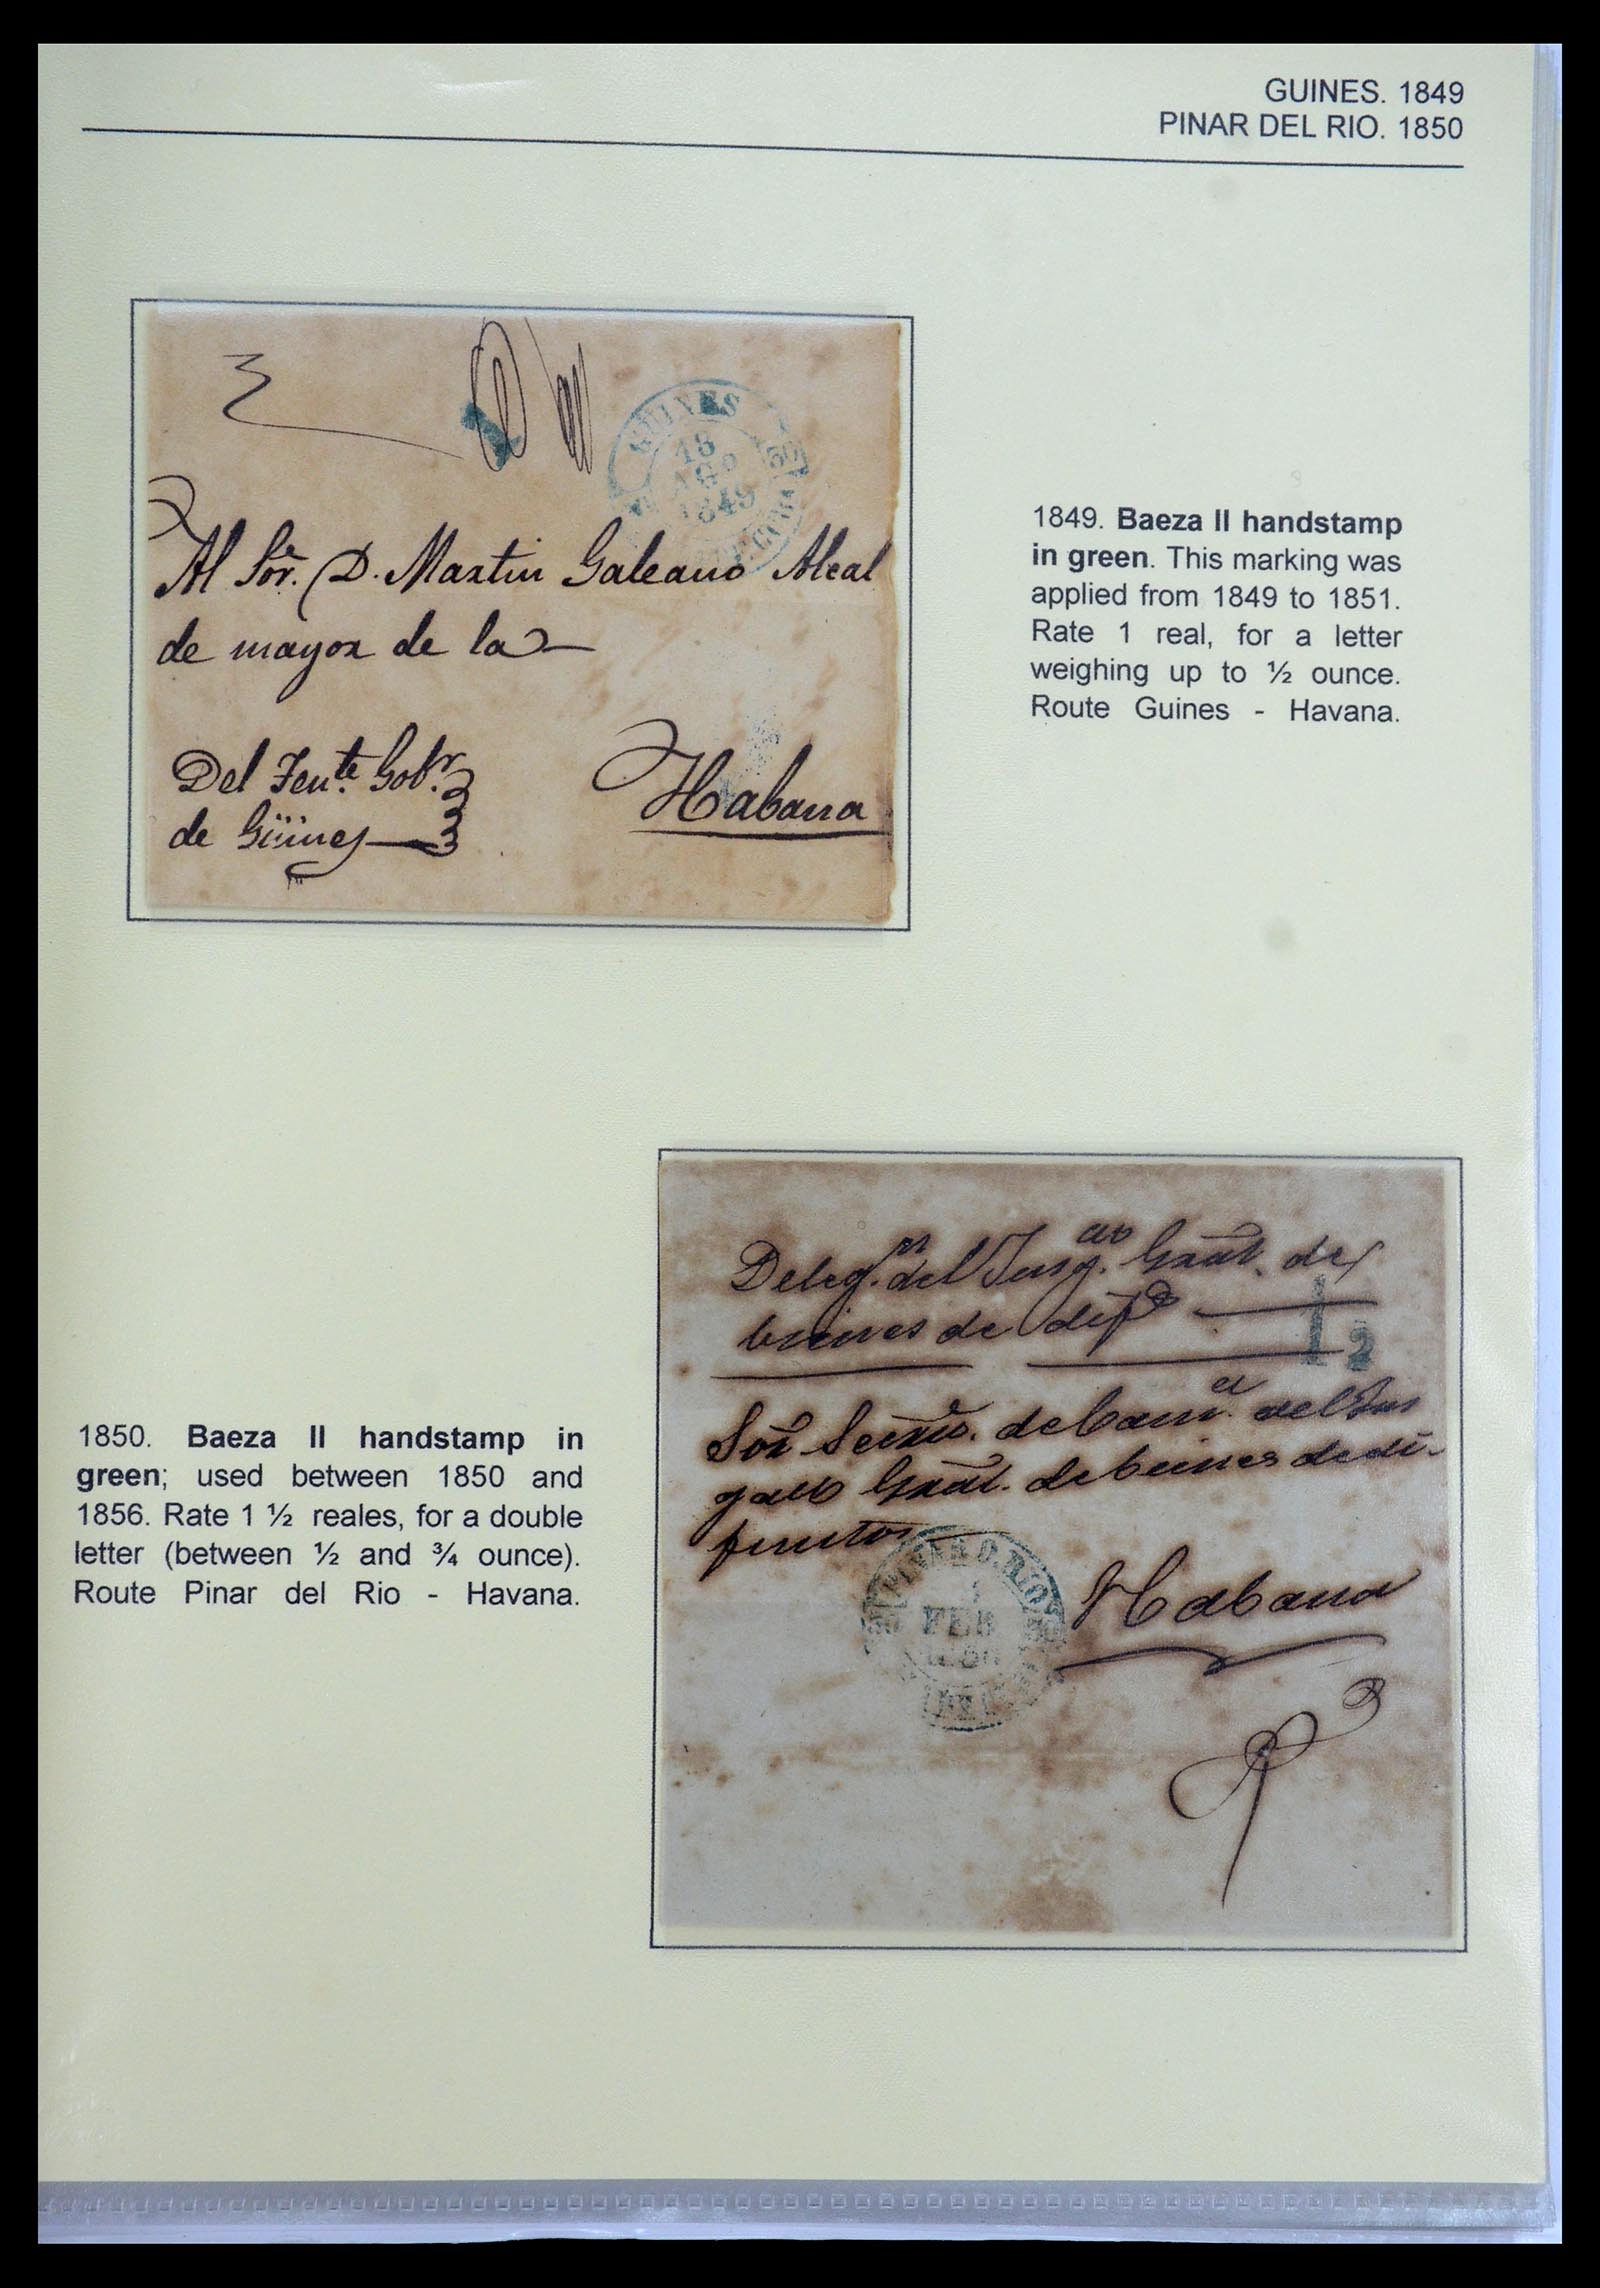 GUINES. 1849
PINAR DEL RIO. 1850
GUINES
18
AGO
1849
Al Sor. D. Martin Galeano Alcal
de mayor de la
Del Tente. Gobr.
de Güines
Habana
1849. Baeza II handstamp
in green. This marking was
applied from 1849 to 1851.
Rate 1 real, for a letter
weighing up to ½ ounce.
Route Guines - Havana.
Delegn. del Jusgdo. Gral. de
bienes de difs
1 2
Sor Secrio. de Cama. del Jus
gado Gral. de bienes de di-
funtos
Habana
PINAR D. RIO
1
FEB
1850
1850. Baeza II handstamp in
green; used between 1850 and
1856. Rate 1 ½ reales, for a double
letter (between ½ and ¾ ounce).
Route Pinar del Rio - Havana.